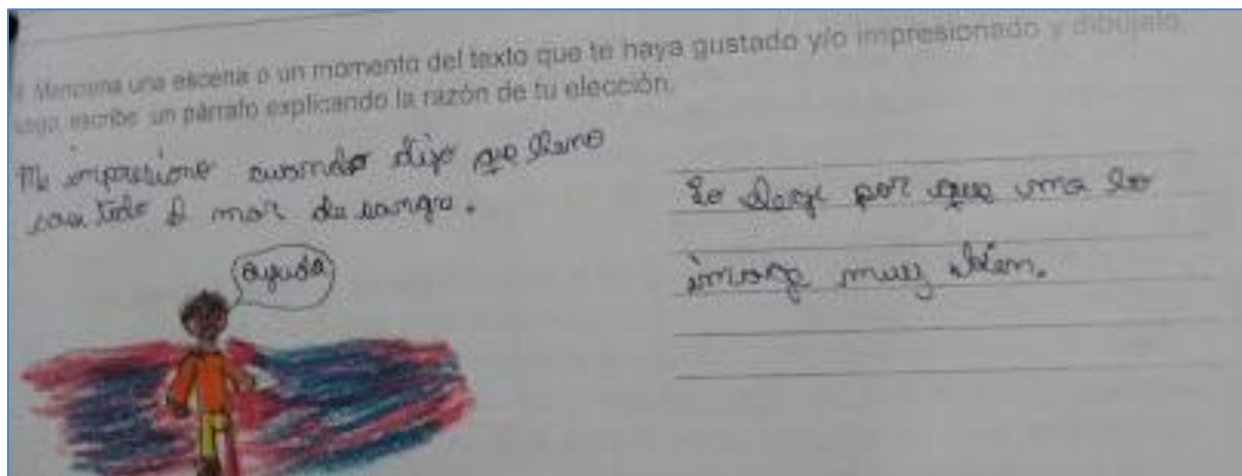 Menciona una escena o un momento del texto que te haya gustado y/o impresionado y dibújalo,
luego escribe un párrafo explicando la razón de tu elección.
Me impresiono cuando dijo que lleno
casi todo el mar de sangre.
ayuda
Lo por que me lo
muy bien.